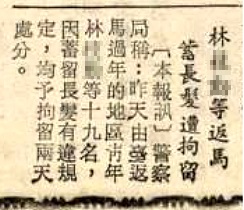 林等返馬
蓄長髮遭拘留
〔本報訊〕警察
局稱:昨天由臺返
馬過年的地區青年
林等十九名,
因蓄留長髮有違規
定,均予拘留兩天
處分。